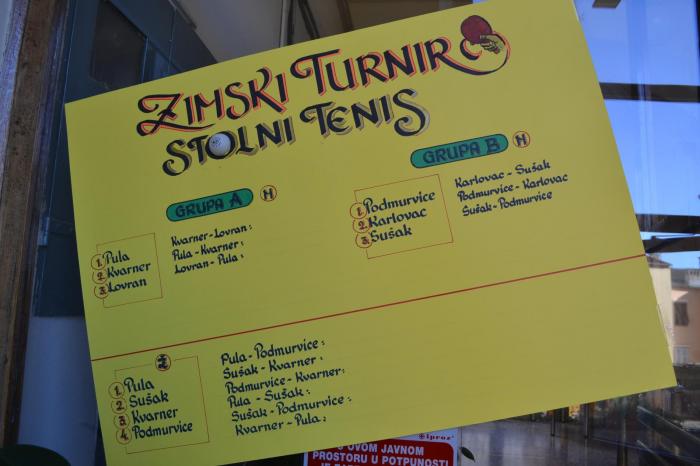 ZIMSKI TURNIR
STOLNI TENIS
GRUPA A M
1. Pula
2. Kvarner
3. Lovran
Kvarner-Lovran:
Pula-Kvarner:
Lovran-Pula:
GRUPA B M
1. Podmurvice
2. Karlovac
3. Sušak
Karlovac-Sušak
Podmurvice-Karlovac
Sušak-Podmurvice
Ž
1 Pula
2 Sušak
3 Kvarner
4 Podmurvice
Pula-Podmurvice:
Sušak-Kvarner:
Podmurvice-Kvarner:
Pula-Sušak:
Sušak-Podmurvice:
Kvarner-Pula:
iproz
OVOM JAVNOM
PROSTORU U POTPUNOSTI
JE